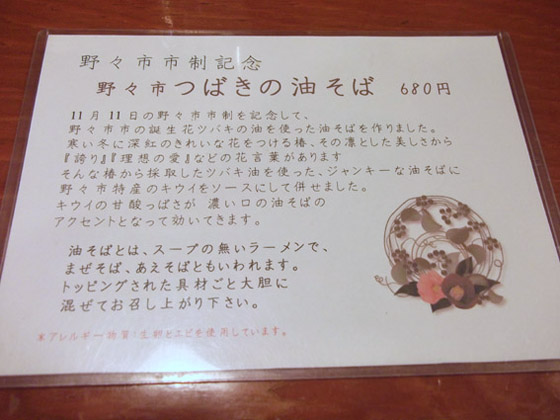 野々市市制記念
野々市 つばきの油そば 680円
11月11日の野々市市制を記念して、
野々市市の誕生花ツバキの油を使った油そばを作りました。
寒い冬に深紅のきれいな花をつける椿、その凛とした美しさから
『誇り』『理想の愛』などの花言葉があります
そんな椿から採取したツバキ油を使った、ジャンキーな油そばに
野々市特産のキウイをソースにして併せました。
キウイの甘酸っぱさが 濃い口の油そばの
アクセントとなって効いてきます。
油そばとは、スープの無いラーメンで、
まぜそば、あえそばともいわれます。
トッピングされた具材ごと大胆に
混ぜてお召し上がり下さい。
アレルギー物質：生卵とエビを使用しています。